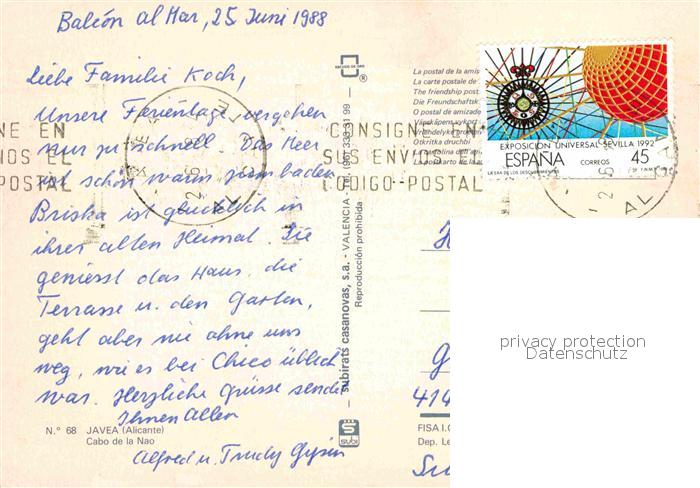 Balcón al Mar, 25. Juni 1988
Liebe Familie Koch,
Unsere Ferientage vergehen
nur zu schnell. Das Meer
ist schön warm zum baden
Briska ist glücklich in
ihrer alten Heimat. Sie
geniesst das Haus, die
Terrasse u. den Garten,
geht aber nie ohne uns
weg, wie es bei Chico üblich
war. Herzliche Grüsse senden
Ihnen Allen
Alfred u. Trudy Gysin
N.° 68 JAVEA (Alicante)
Cabo de la Nao
subirats casanovas, s.a. - VALENCIA -
Reproducción prohibida
®
SUBI
La postal de la amis
La carte postale de
The friendship post
Die Freundschaftk
O postal de amizad
Otkritka druchbi
NE EN
NIOS EL
POSTAL
CONSIGNE EN
SUS ENVIOS EL
CODIGO-POSTAL
EXPOSICION UNIVERSAL SEVILLA 1992
ESPAÑA CORREOS 45
LA ERA DE LOS DESCUBRIMIENTOS
414
FISA I.G
Dep. Le
privacy protection
Datenschutz